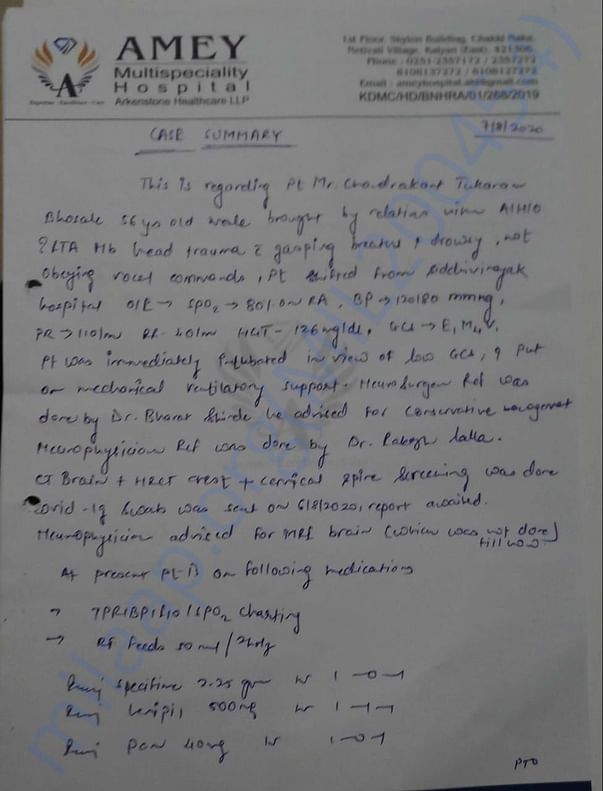 AMEY
Multispeciality
Hospital
Arkenstone Healthcare LLP
1st Floor, Skylon Building, Chakki Naka,
Metivali Village, Kalyan (East). 421306
Phone : 0251-2357172 / 2357272
KDMC/HD/BNHRA/01/268/2019
CASE SUMMARY
7/8/2020
This is regarding Pt Mr. Chandrakant Tukaram
Bhosale 56 yrs old male brought by relatives with A/H/O
? RTA head trauma gasping breaths & drowsy, not
obeying vocal commands, Pt shifted from Siddhivinayak
hospital O/E → SPO2 → 80% on RA, BP → 120/80 mmhg,
PR → 110/m RR - 40/m HGT - 126 mg/dl, GCS → E1 M4 V
Pt was immediately intubated in view of low GCS, & put
on mechanical ventilatory support. Neurosurgeon Ref was
done by Dr. Bharat Shinde he advised for conservative management
Neurophysician Ref was done by Dr. Rakesh Lalla.
CT Brain + HRCT chest + cervical spine screening was done
Covid-19 swab was sent on 6/8/2020, report awaited.
Neurophysician advised for MRI brain (which was not done)
till now
At present Pt is on following medications
→ TPR/BP/I/O/SPO2 charting
→ RT feeds 50 ml/2hrly
Inj 2.25 gm IV 1-0-1
Inj 500mg IV 1-1-1
Inj Pan 40mg IV 1-0-1
PTO